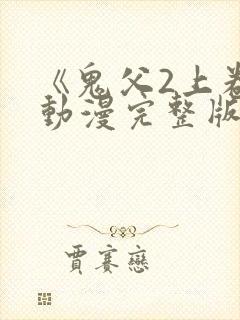 《鬼父2上卷
動漫完整版
賈賽戀